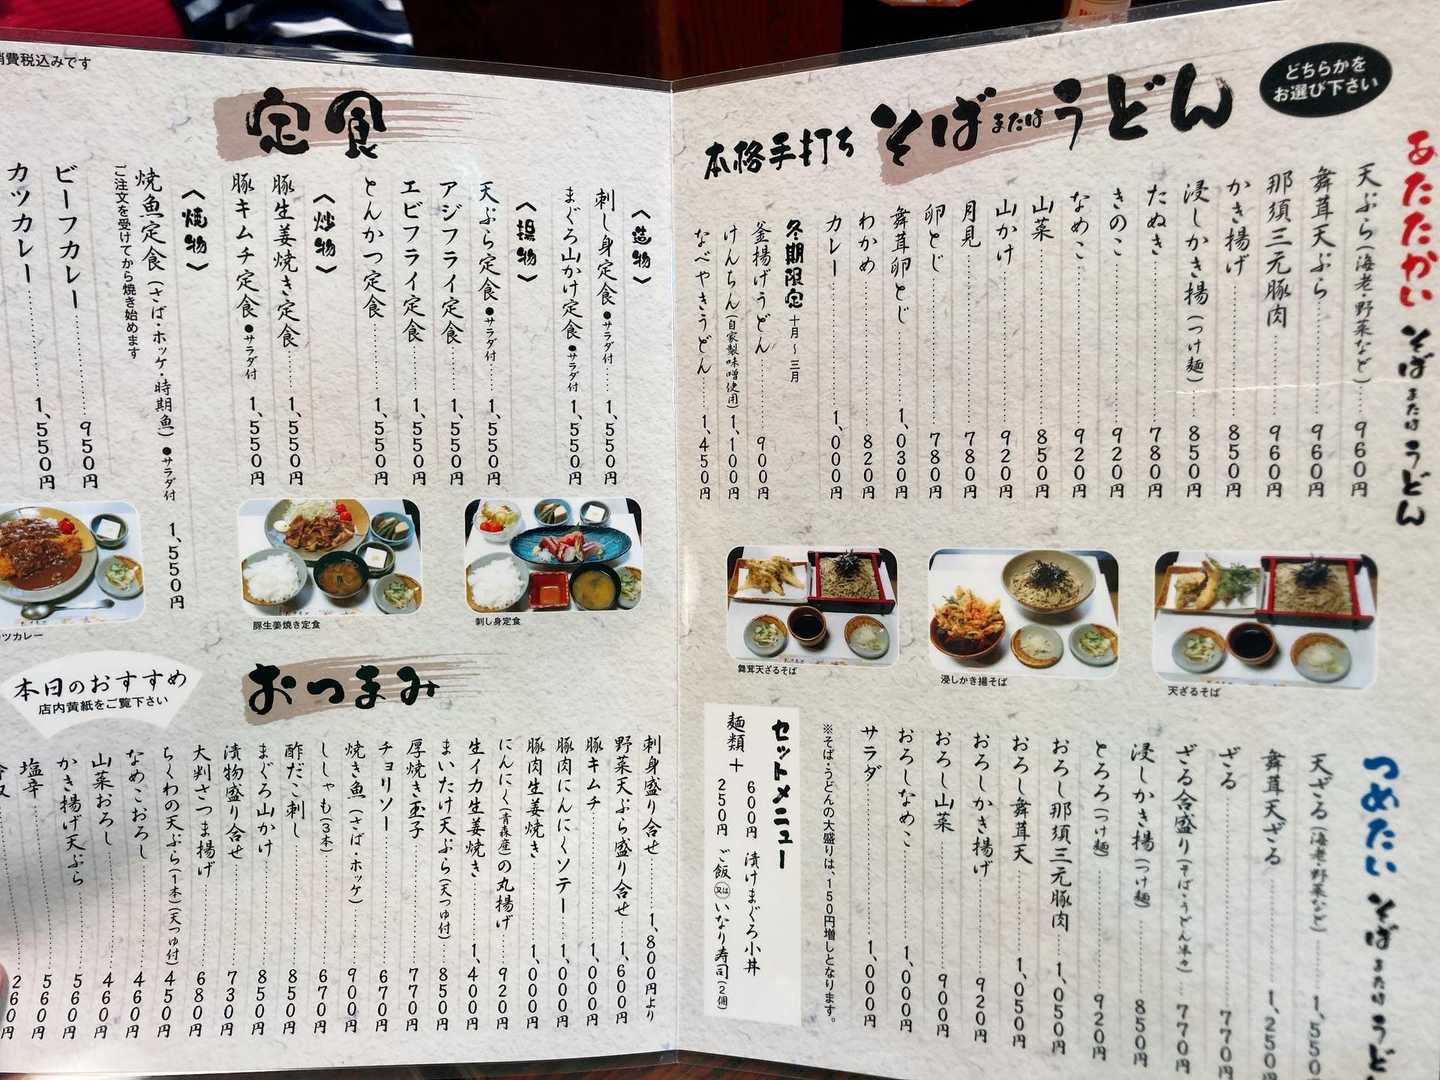 どちらかを
お選び下さい
本格手打ち そば または うどん
あたたかい そば または うどん
天ぷら(海老・野菜など) 960円
舞茸天ぷら 960円
那須三元豚肉 960円
かき揚げ 850円
浸しかき揚(つけ麺) 850円
たぬき 780円
きのこ 920円
なめこ 920円
山菜 850円
山かけ 920円
月見 780円
卵とじ 780円
舞茸卵とじ 1,030円
わかめ 820円
カレー 1,000円
冬期限定 十月〜三月
釜揚げうどん 900円
けんちん(自家製味噌使用) 1,100円
なべやきうどん 1,450円
舞茸天ざるそば
浸しかき揚そば
天ざるそば
つめたい そば または うど
天ざる(海老・野菜など) 1,550
舞茸天ざる 1,250円
ざる 770円
ざる合盛り(そば・うどん半々) 770円
浸しかき揚(つけ麺) 850円
とろろ(つけ麺) 920円
おろし那須三元豚肉 1,050円
おろし舞茸天 1,050円
おろしかき揚げ 920円
おろし山菜 900円
おろしなめこ 1,000円
サラダ 1,000円
※そば・うどんの大盛りは、150円増しとなります。
セットメニュー
麺類+
600円 漬けまぐろ小丼
250円 ご飯又はいなり寿司(2個)
消費税込みです
定食
〈造物〉
刺し身定食 ●サラダ付 1,550円
まぐろ山かけ定食 ●サラダ付 1,550円
〈揚物〉
天ぷら定食 ●サラダ付 1,550円
アジフライ定食 1,550円
エビフライ定食 1,550円
とんかつ定食 1,550円
〈炒物〉
豚生姜焼き定食 1,550円
豚キムチ定食 ●サラダ付 1,550円
〈焼物〉
焼魚定食(さば・ホッケ・時期魚) ●サラダ付 1,550円
ご注文を受けてから焼き始めます
ビーフカレー 950円
カツカレー 1,550円
ツカレー
豚生姜焼き定食
刺し身定食
本日のおすすめ
店内黄紙をご覧下さい
おつまみ
刺身盛り合せ 1,800円より
野菜天ぷら盛り合せ 1,600円
豚キムチ 1,000円
豚肉にんにくソテー 1,000円
豚肉生姜焼き 1,000円
にんにく(青森産)の丸揚げ 920円
生イカ生姜焼き 1,400円
まいたけ天ぷら(天つゆ付) 850円
厚焼き玉子 770円
チョリソー 670円
焼き魚(さば・ホッケ) 900円
ししゃも(3本) 670円
酢だこ刺し 850円
まぐろ山かけ 850円
漬物盛り合せ 730円
大判さつま揚げ 680円
ちくわの天ぷら(1本)(天つゆ付) 450円
なめこおろし 460円
山菜おろし 460円
かき揚げ天ぷら 560円
塩辛 560円
260円